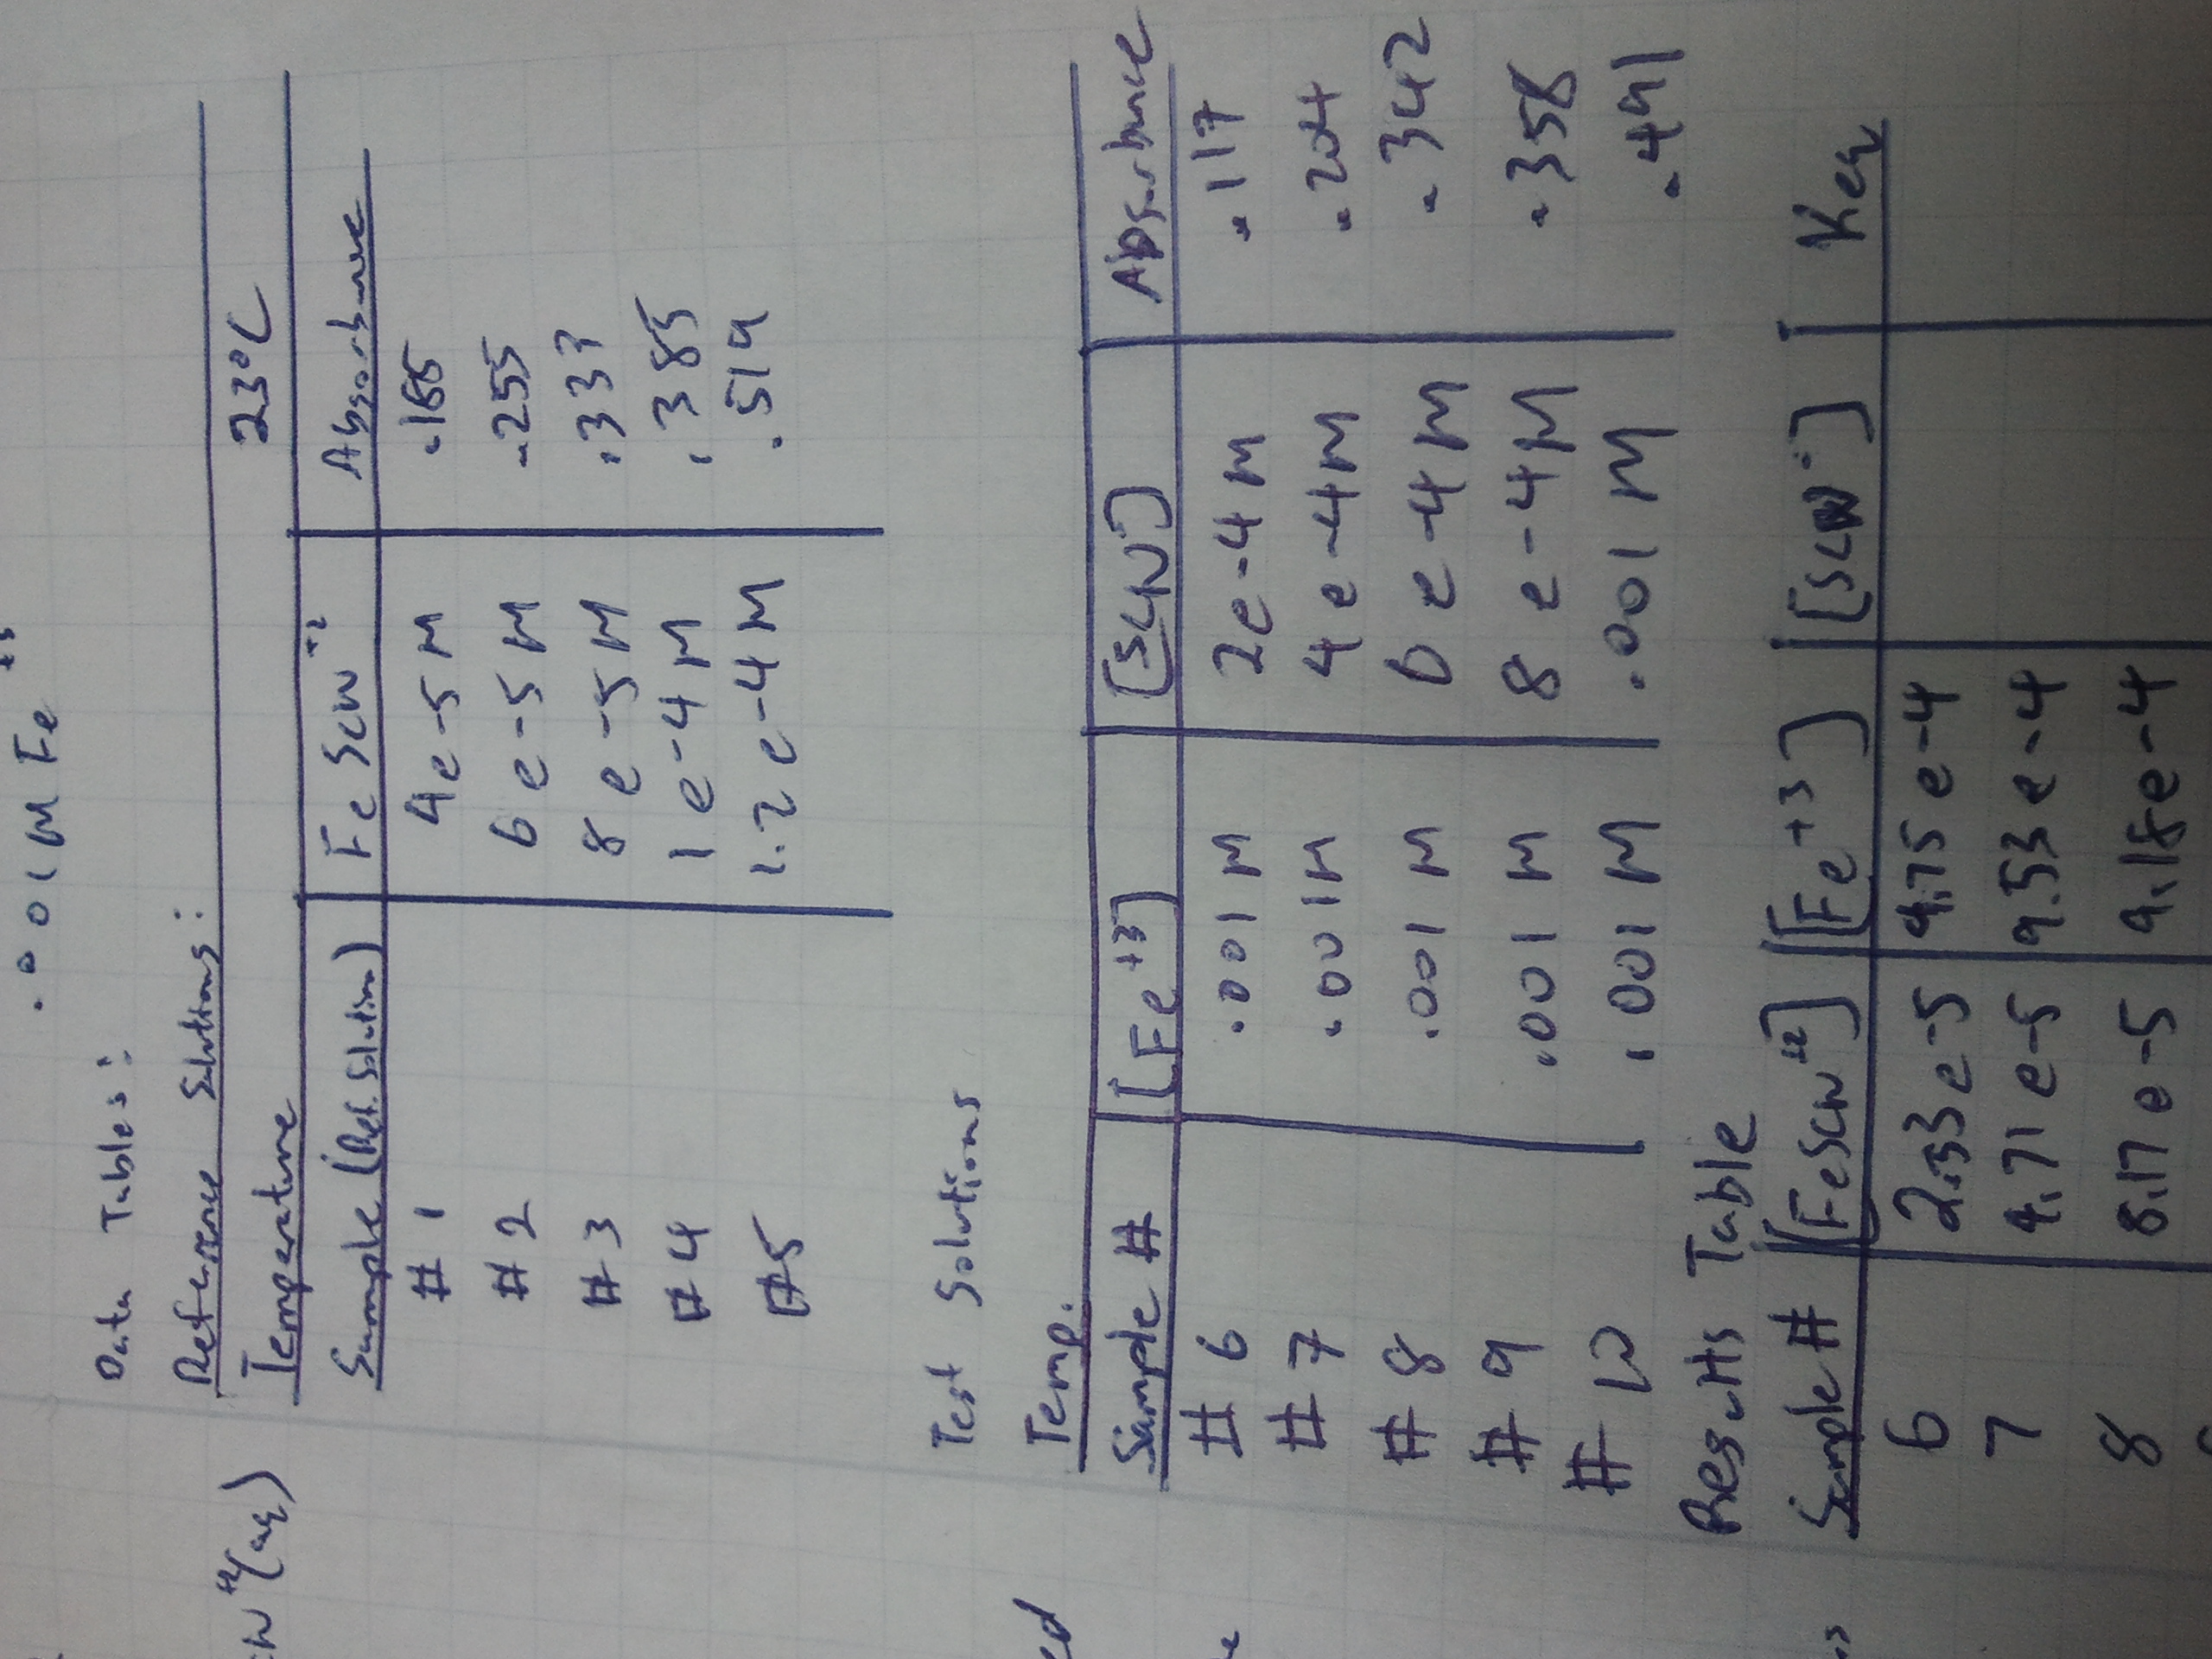 .001M Fe+3
Data Tables:
Reference Solutions:
Temperature 23°C
Sample (Ref. Solution) FeSCN+2 Absorbance
#1 4e-5M
#2 6e-5M .255
#3 8e-5M .337
#4 1e-4M .385
#5 1.2e-4M .519
Test Solutions
Temp.
Sample # [Fe+3] [SCN-] Absorbance
#6 .001M 2e-4M .117
#7 .001M 4e-4M .204
#8 .001M 6e-4M .342
#9 .001M 8e-4M .358
#10 .001M .001M .491
Results Table
Sample # [FeSCN+2] [Fe+3] [SCN-] Keq
6 2.33e-5 9.75e-4
7 4.71e-5 9.53e-4
8 8.17e-5 9.18e-4